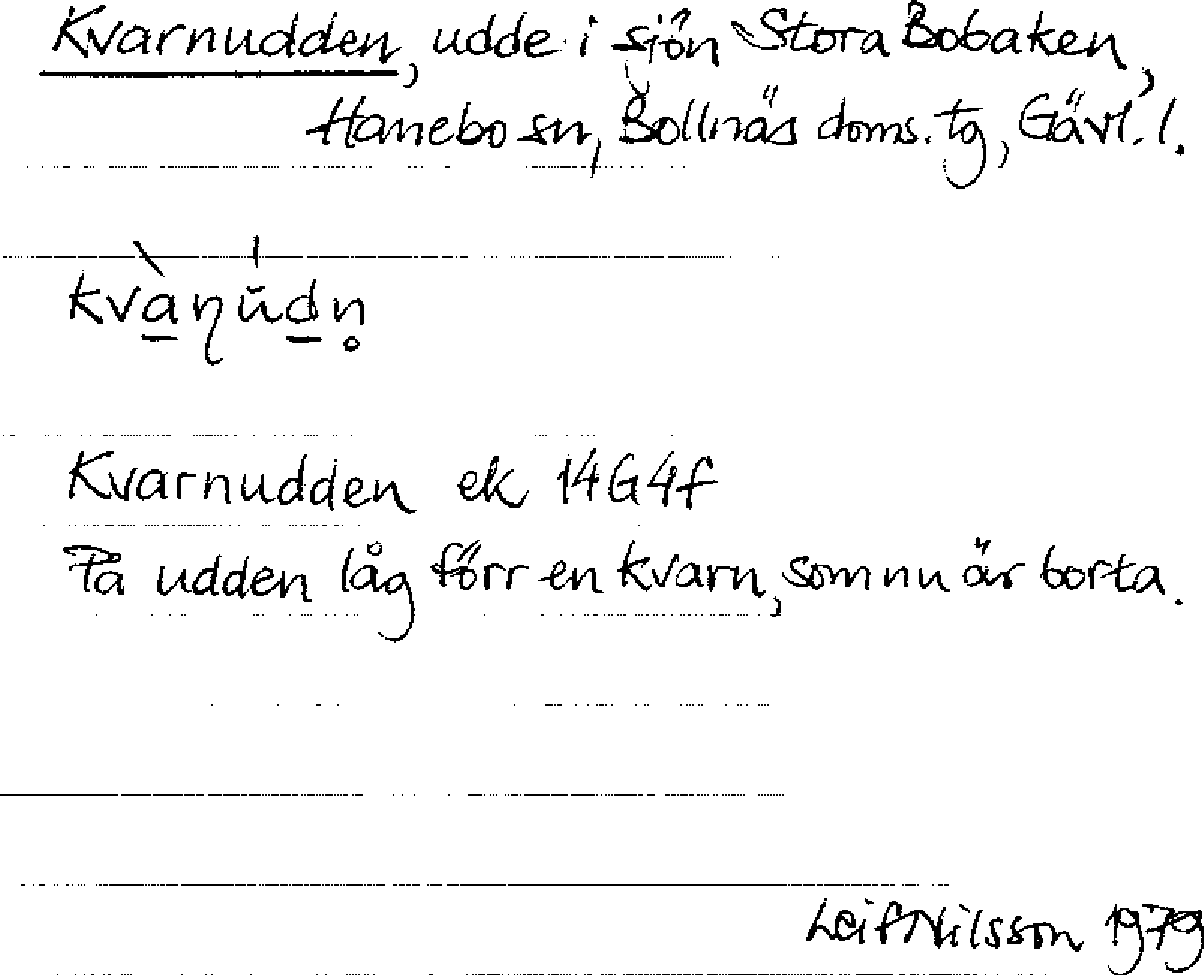 Kvarnudden, udde i sjön Stora Bobaken,
Hanebo sn, Bollnäs doms. tg, Gävl. l.
kvàɳŭdn̥
Kvarnudden ek 14G4f
På udden låg förr en kvarn, som nu är borta.
Leif Nilsson 1979